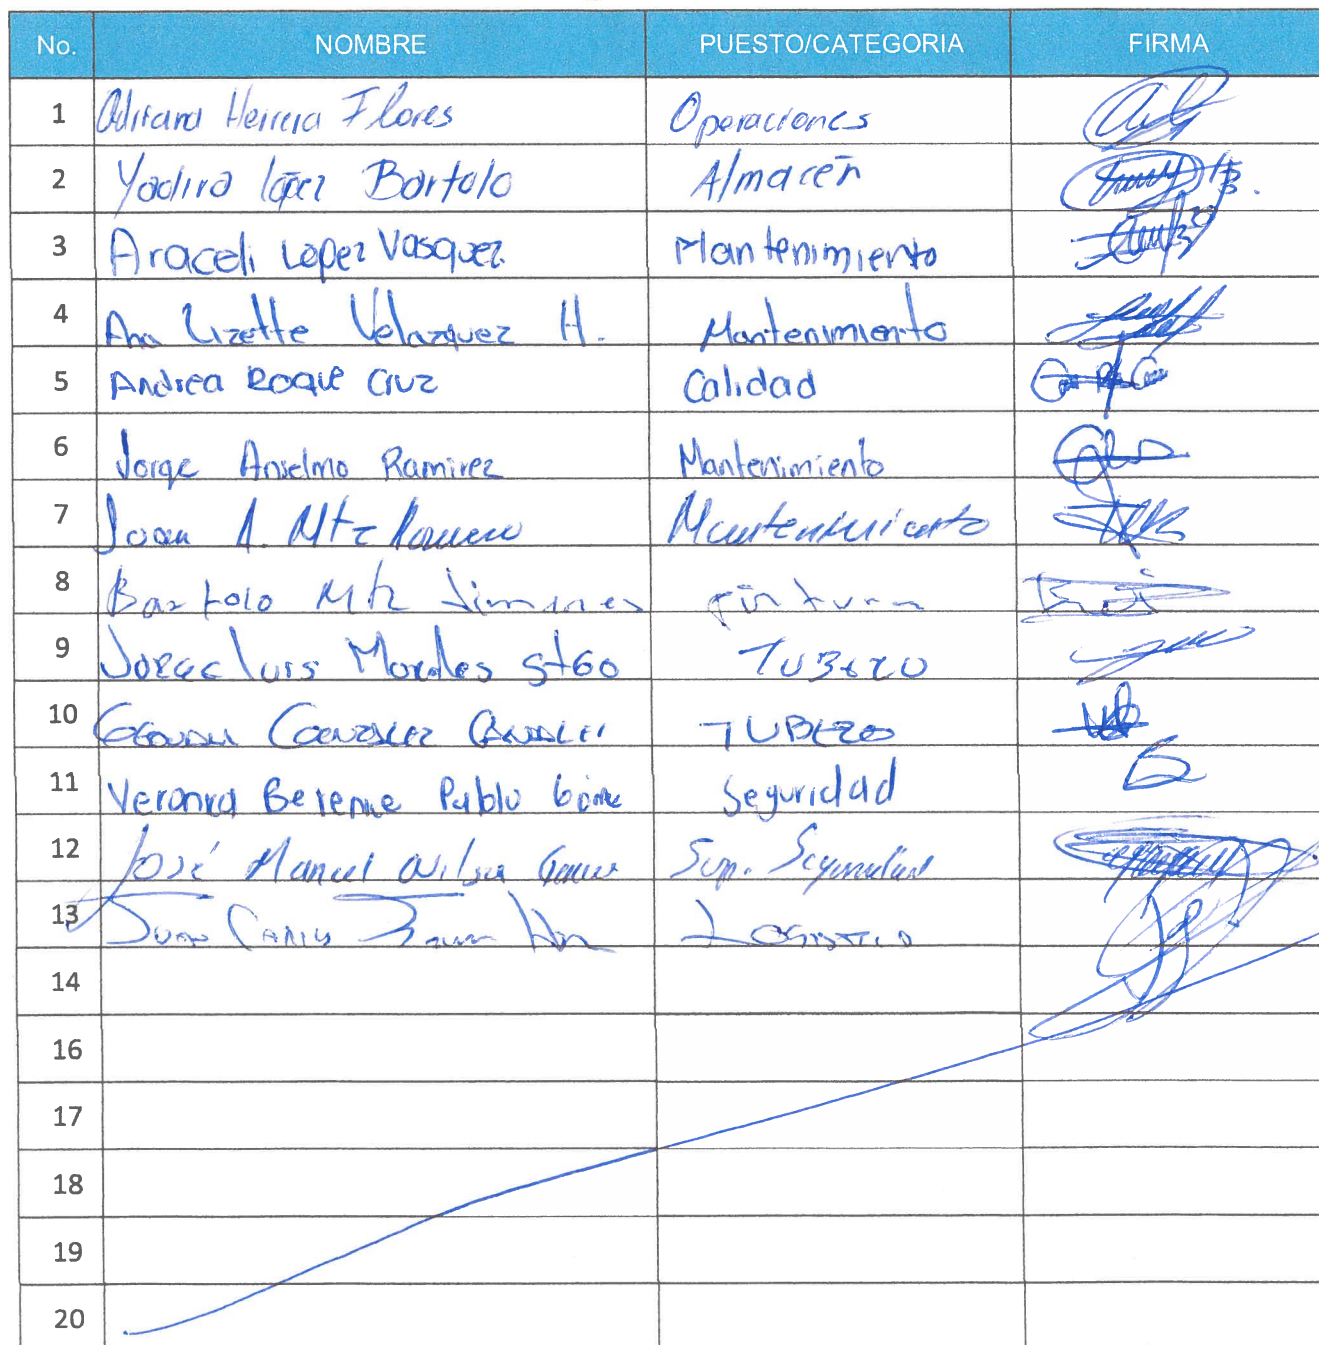 No. NOMBRE PUESTO/CATEGORIA FIRMA
1 Adriana Herrera Flores Operaciones
2 Yadira López Bartolo Almacén
3 Araceli López Vasquez Mantenimiento
4 Ana Lizette Velazquez H. Mantenimiento
5 Andrea ROQUE CRUZ Calidad
6 Jorge Anselmo Ramirez Mantenimiento
7 Juan A. Mtz Romero Mantenimiento
8 Bartolo Mtz Jimenes Pintura
9 JORGE LUIS Morales StGO TUBERO
10 GONZALEZ TUBERO
11 Veronica Berenice Pablo Seguridad
12 José Manuel Sup. Seguridad
13 JUAN CARLOS LOGISTICA
14
16
17
18
19
20